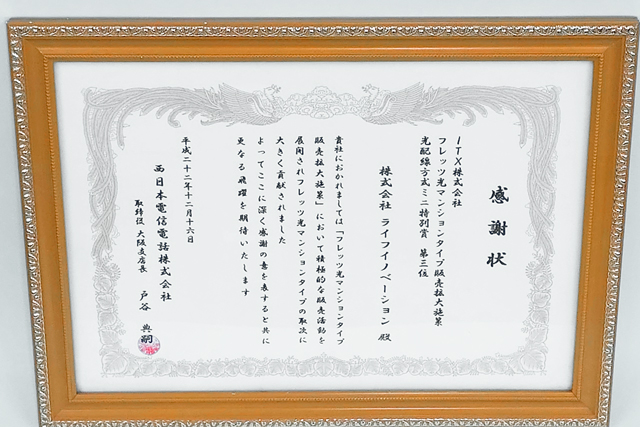 感謝状
ITX株式会社
フレッツ光マンションタイプ販売拡大施策
光配線方式ミニ特別賞 第三位
株式会社 ライフイノベーション 殿
貴社におかれましては「フレッツ光マンションタイプ
販売拡大施策」において積極的な販売活動を
展開されフレッツ光マンションタイプの取次に
大きく貢献されました
よってここに深く感謝の意を表すると共に
更なる飛躍を期待いたします
平成二十二年十二月十六日
西日本電信電話株式会社
取締役 大阪支店長 戸谷 典嗣